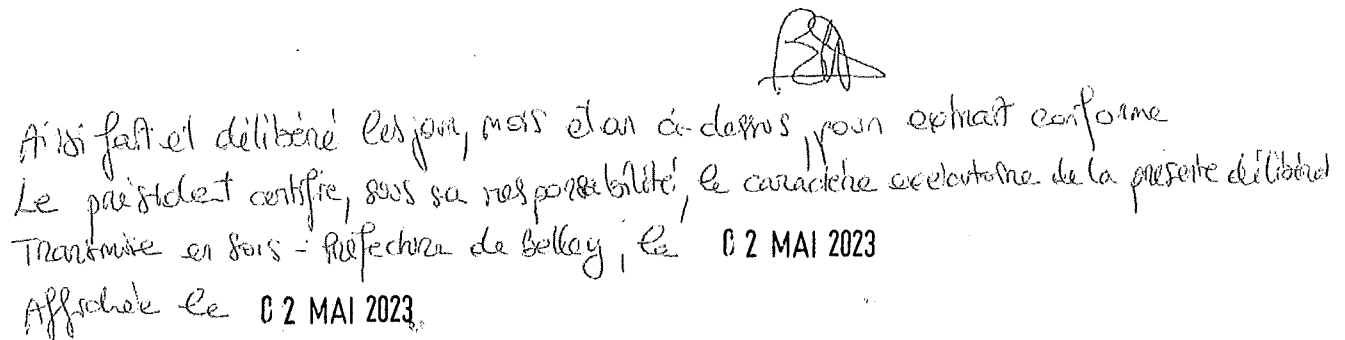 Ainsi fait et délibéré les jour, mois et an ci-dessus, pour extrait conforme
Le président certifie, sous sa responsabilité, le caractère exécutoire de la présente délibérat
Transmise en Sous-Préfecture de Belley, le 02 MAI 2023
Affichée le 02 MAI 2023